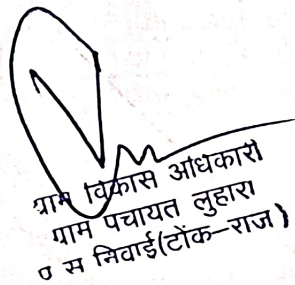 ग्राम विकास अधिकारी
ग्राम पंचायत लुहारा
प स निवाई(टोंक-राज)